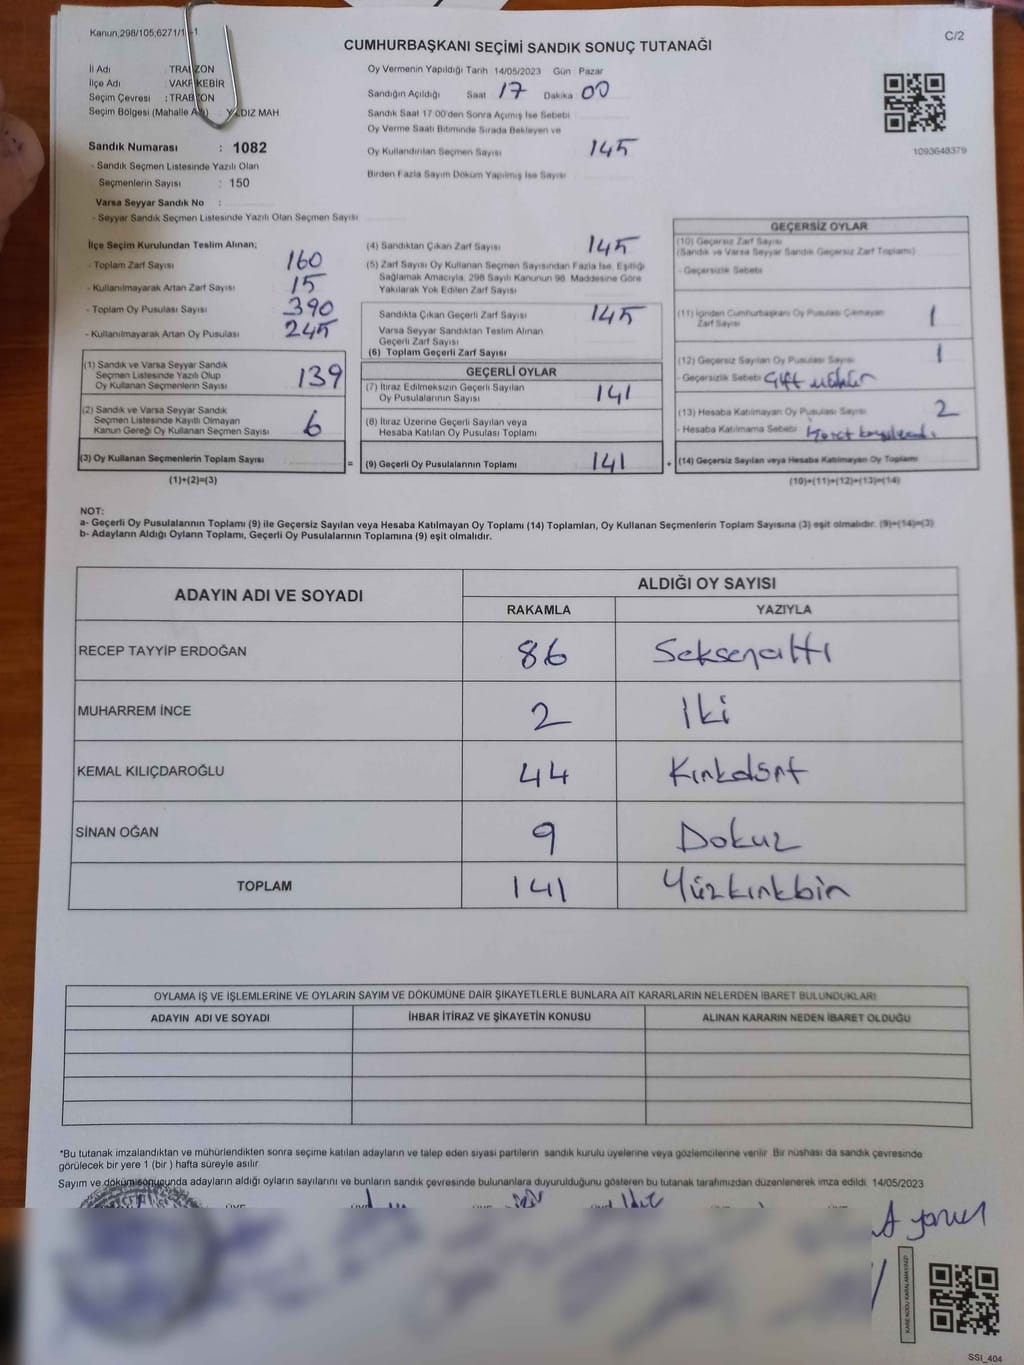 Kanun,298/105,6271/1 -1
C/2
CUMHURBAŞKANI SEÇİMİ SANDIK SONUÇ TUTANAĞI
İl Adı : TRABZON
İlçe Adı : VAKFIKEBİR
Seçim Çevresi : TRABZON
Seçim Bölgesi (Mahalle Adı) YILDIZ MAH
Sandık Numarası : 1082
- Sandık Seçmen Listesinde Yazılı Olan
Seçmenlerin Sayısı : 150
Varsa Seyyar Sandık No :
- Seyyar Sandık Seçmen Listesinde Yazılı Olan Seçmen Sayısı
Oy Vermenin Yapıldığı Tarih 14/05/2023 Gün Pazar
Sandığın Açıldığı Saat 17 Dakika 00
Sandık Saat 17:00'den Sonra Açımış İse Sebebi
Oy Verme Saati Bitiminde Sırada Bekleyen ve
Oy Kullandırılan Seçmen Sayısı 145
Birden Fazla Sayım Döküm Yapılmış İse Sayısı
1093648379
İlçe Seçim Kurulundan Teslim Alınan;
- Toplam Zarf Sayısı 160
- Kullanılmayarak Artan Zarf Sayısı 15
- Toplam Oy Pusulası Sayısı 390
- Kullanılmayarak Artan Oy Pusulası 245
(1) Sandık ve Varsa Seyyar Sandık
Seçmen Listesinde Yazılı Olup
Oy Kullanan Seçmenlerin Sayısı 139
(2) Sandık ve Varsa Seyyar Sandık
Seçmen Listesinde Kayıtlı Olmayan
Kanun Gereği Oy Kullanan Seçmen Sayısı 6
(3) Oy Kullanan Seçmenlerin Toplam Sayısı =
(1)+(2)=(3)
(4) Sandıktan Çıkan Zarf Sayısı 145
(5) Zarf Sayısı Oy Kullanan Seçmen Sayısından Fazla İse, Eşitliği
Sağlamak Amacıyla, 298 Sayılı Kanunun 98. Maddesine Göre
Yakılarak Yok Edilen Zarf Sayısı
Sandıkta Çıkan Geçerli Zarf Sayısı 145
Varsa Seyyar Sandıktan Teslim Alınan
Geçerli Zarf Sayısı
(6) Toplam Geçerli Zarf Sayısı
GEÇERLİ OYLAR
(7) İtiraz Edilmeksizin Geçerli Sayılan
Oy Pusulalarının Sayısı 141
(8) İtiraz Üzerine Geçerli Sayılan veya
Hesaba Katılan Oy Pusulası Toplamı
(9) Geçerli Oy Pusulalarının Toplamı 141 +
GEÇERSİZ OYLAR
(10) Geçersiz Zarf Sayısı
(Sandık ve Varsa Seyyar Sandık Geçersiz Zarf Toplamı)
- Geçersizlik Sebebi
(11) İçinden Cumhurbaşkanı Oy Pusulası Çıkmayan
Zarf Sayısı 1
(12) Geçersiz Sayılan Oy Pusulası Sayısı 1
- Geçersizlik Sebebi Çift mühür
(13) Hesaba Katılmayan Oy Pusulası Sayısı 2
- Hesaba Katılmama Sebebi
(14) Geçersiz Sayılan veya Hesaba Katılmayan Oy Toplamı
(10)+(11)+(12)+(13)=(14)
NOT:
a- Geçerli Oy Pusulalarının Toplamı (9) ile Geçersiz Sayılan veya Hesaba Katılmayan Oy Toplamı (14) Toplamları, Oy Kullanan Seçmenlerin Toplam Sayısına (3) eşit olmalıdır. (9)+(14)=(3)
b- Adayların Aldığı Oyların Toplamı, Geçerli Oy Pusulalarının Toplamına (9) eşit olmalıdır.
ADAYIN ADI VE SOYADI
ALDIĞI OY SAYISI
RAKAMLA YAZIYLA
RECEP TAYYİP ERDOĞAN 86 Seksenaltı
MUHARREM İNCE 2 İki
KEMAL KILIÇDAROĞLU 44 Kırkdört
SİNAN OĞAN 9 Dokuz
TOPLAM 141 Yüzkırkbir
OYLAMA İŞ VE İŞLEMLERİNE VE OYLARIN SAYIM VE DÖKÜMÜNE DAİR ŞİKAYETLERLE BUNLARA AİT KARARLARIN NELERDEN İBARET BULUNDUKLARI
ADAYIN ADI VE SOYADI İHBAR İTİRAZ VE ŞİKAYETİN KONUSU ALINAN KARARIN NEDEN İBARET OLDUĞU
*Bu tutanak imzalandıktan ve mühürlendikten sonra seçime katılan adayların ve talep eden siyasi partilerin sandık kurulu üyelerine veya gözlemcilerine verilir. Bir nüshası da sandık çevresinde
görülecek bir yere 1 (bir ) hafta süreyle asılır.
Sayım ve döküm sonucunda adayların aldığı oyların sayılarını ve bunların sandık çevresinde bulunanlara duyurulduğunu gösteren bu tutanak tarafımızdan düzenlenerek imza edildi. 14/05/2023
KARE KODU KARALAMAYINIZ!
SSI_404